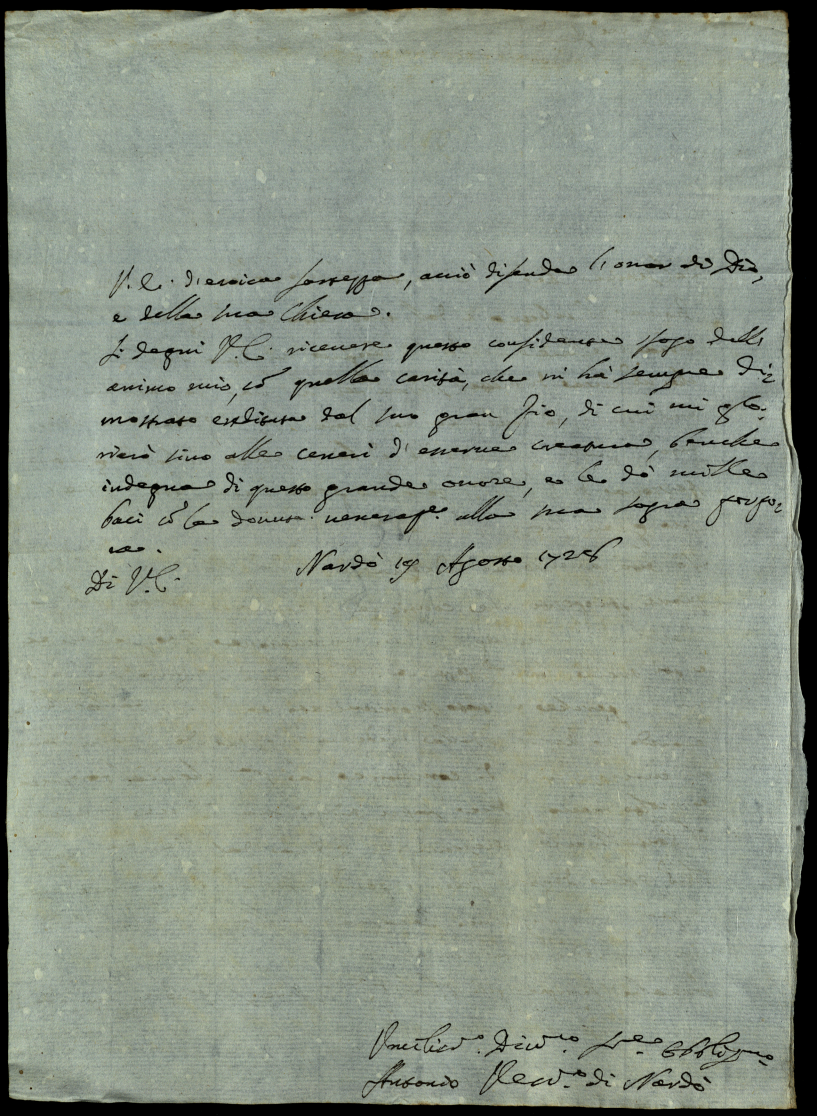 V. E. d'eroica fortezza, acciò difenda l'onor di Dio,
e della sua Chiesa.
Si degni V. E. ricevere questo confidente sfogo dell'
animo mio, cō quella carità, che mi hà sempre di=
mostrato ereditata dal suo gran Zio, di cui mi glo=
rierò sino alle ceneri d'esserne creatura, benche
indegna di questo grande onore, e le dò mille
baci cō la dovuta veneraz.e alla sua sagra porpo=
ra.
Di V. E. Nardò 19 Agosto 1726
Umiliss.o Divot.o ser.e Obblig.mo
Antonio Vesc.o di Nardò